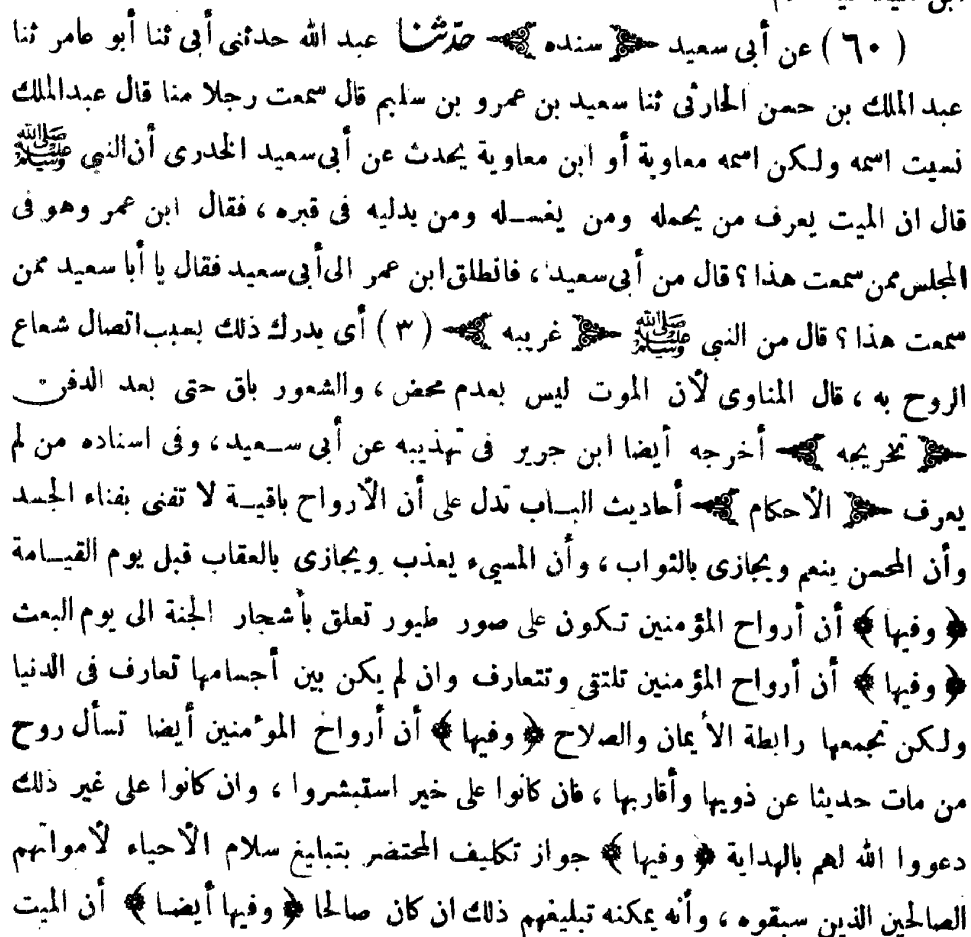 ( ٦٠ ) عن أبى سعيد ﴿ سنده ﴾ حدّثنا عبد الله حدثنى أبى ثنا أبو عامر ثنا
عبد الملك بن حسن الحارثى ثنا سعيد بن عمرو بن سليم قال سمعت رجلا منا قال عبدالملك
نسيت اسمه ولكن اسمه معاوية أو ابن معاوية يحدث عن أبى سعيد الخدرى أن النبى ﷺ
قال ان الميت يعرف من يحمله ومن يغسله ومن يدليه فى قبره ، فقال ابن عمر وهو فى
المجلس ممن سمعت هذا ؟ قال من أبى سعيد ، فانطلق ابن عمر الى أبى سعيد فقال يا أبا سعيد ممن
سمعت هذا ؟ قال من النبى ﷺ ﴿ غريبه ﴾ ( ٣ ) أى يدرك ذلك بسبب اتصال شعاع
الروح به ، قال المناوى لأن الموت ليس بعدم محض ، والشعور باق حتى بعد الدفن
﴿ تخريجه ﴾ أخرجه أيضا ابن جرير فى تهذيبه عن أبى سعيد ، وفى اسناده من لم
يعرف ﴿ الأحكام ﴾ أحاديث الباب تدل على أن الأرواح باقية لا تفنى بفناء الجسد
وأن المحسن ينعم ويجازى بالثواب ، وأن المسيء يعذب ويجازى بالعقاب قبل يوم القيامة
﴿ وفيها ﴾ أن أرواح المؤمنين تكون على صور طيور تعلق بأشجار الجنة الى يوم البعث
﴿ وفيها ﴾ أن أرواح المؤمنين تلتقى وتتعارف وان لم يكن بين أجسامها تعارف فى الدنيا
ولكن تجمعها رابطة الأيمان والصلاح ﴿ وفيها ﴾ أن أرواح المؤمنين أيضا تسأل روح
من مات حديثا عن ذويها وأقاربها ، فان كانوا على خير استبشروا ، وان كانوا على غير ذلك
دعووا الله لهم بالهداية ﴿ وفيها ﴾ جواز تكليف المحتضر بتبليغ سلام الأحياء لأمواتهم
الصالحين الذين سبقوه ، وأنه يمكنه تبليغهم ذلك ان كان صالحا ﴿ وفيها أيضا ﴾ أن الميت